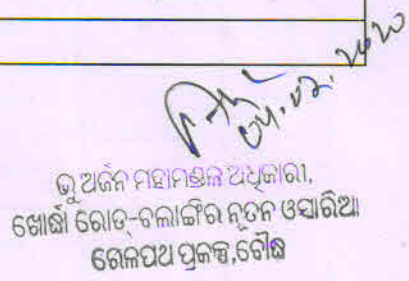 ଭୂ ଅର୍ଜନ ମହାମଣ୍ଡଳ ଅଧିକାରୀ,
ଖୋର୍ଦ୍ଧା ରୋଡ୍-ବଲାଙ୍ଗିର ନୂତନ ଓସାରିଆ
ରେଳପଥ ପ୍ରକଳ୍ପ,ବୌଦ୍ଧ